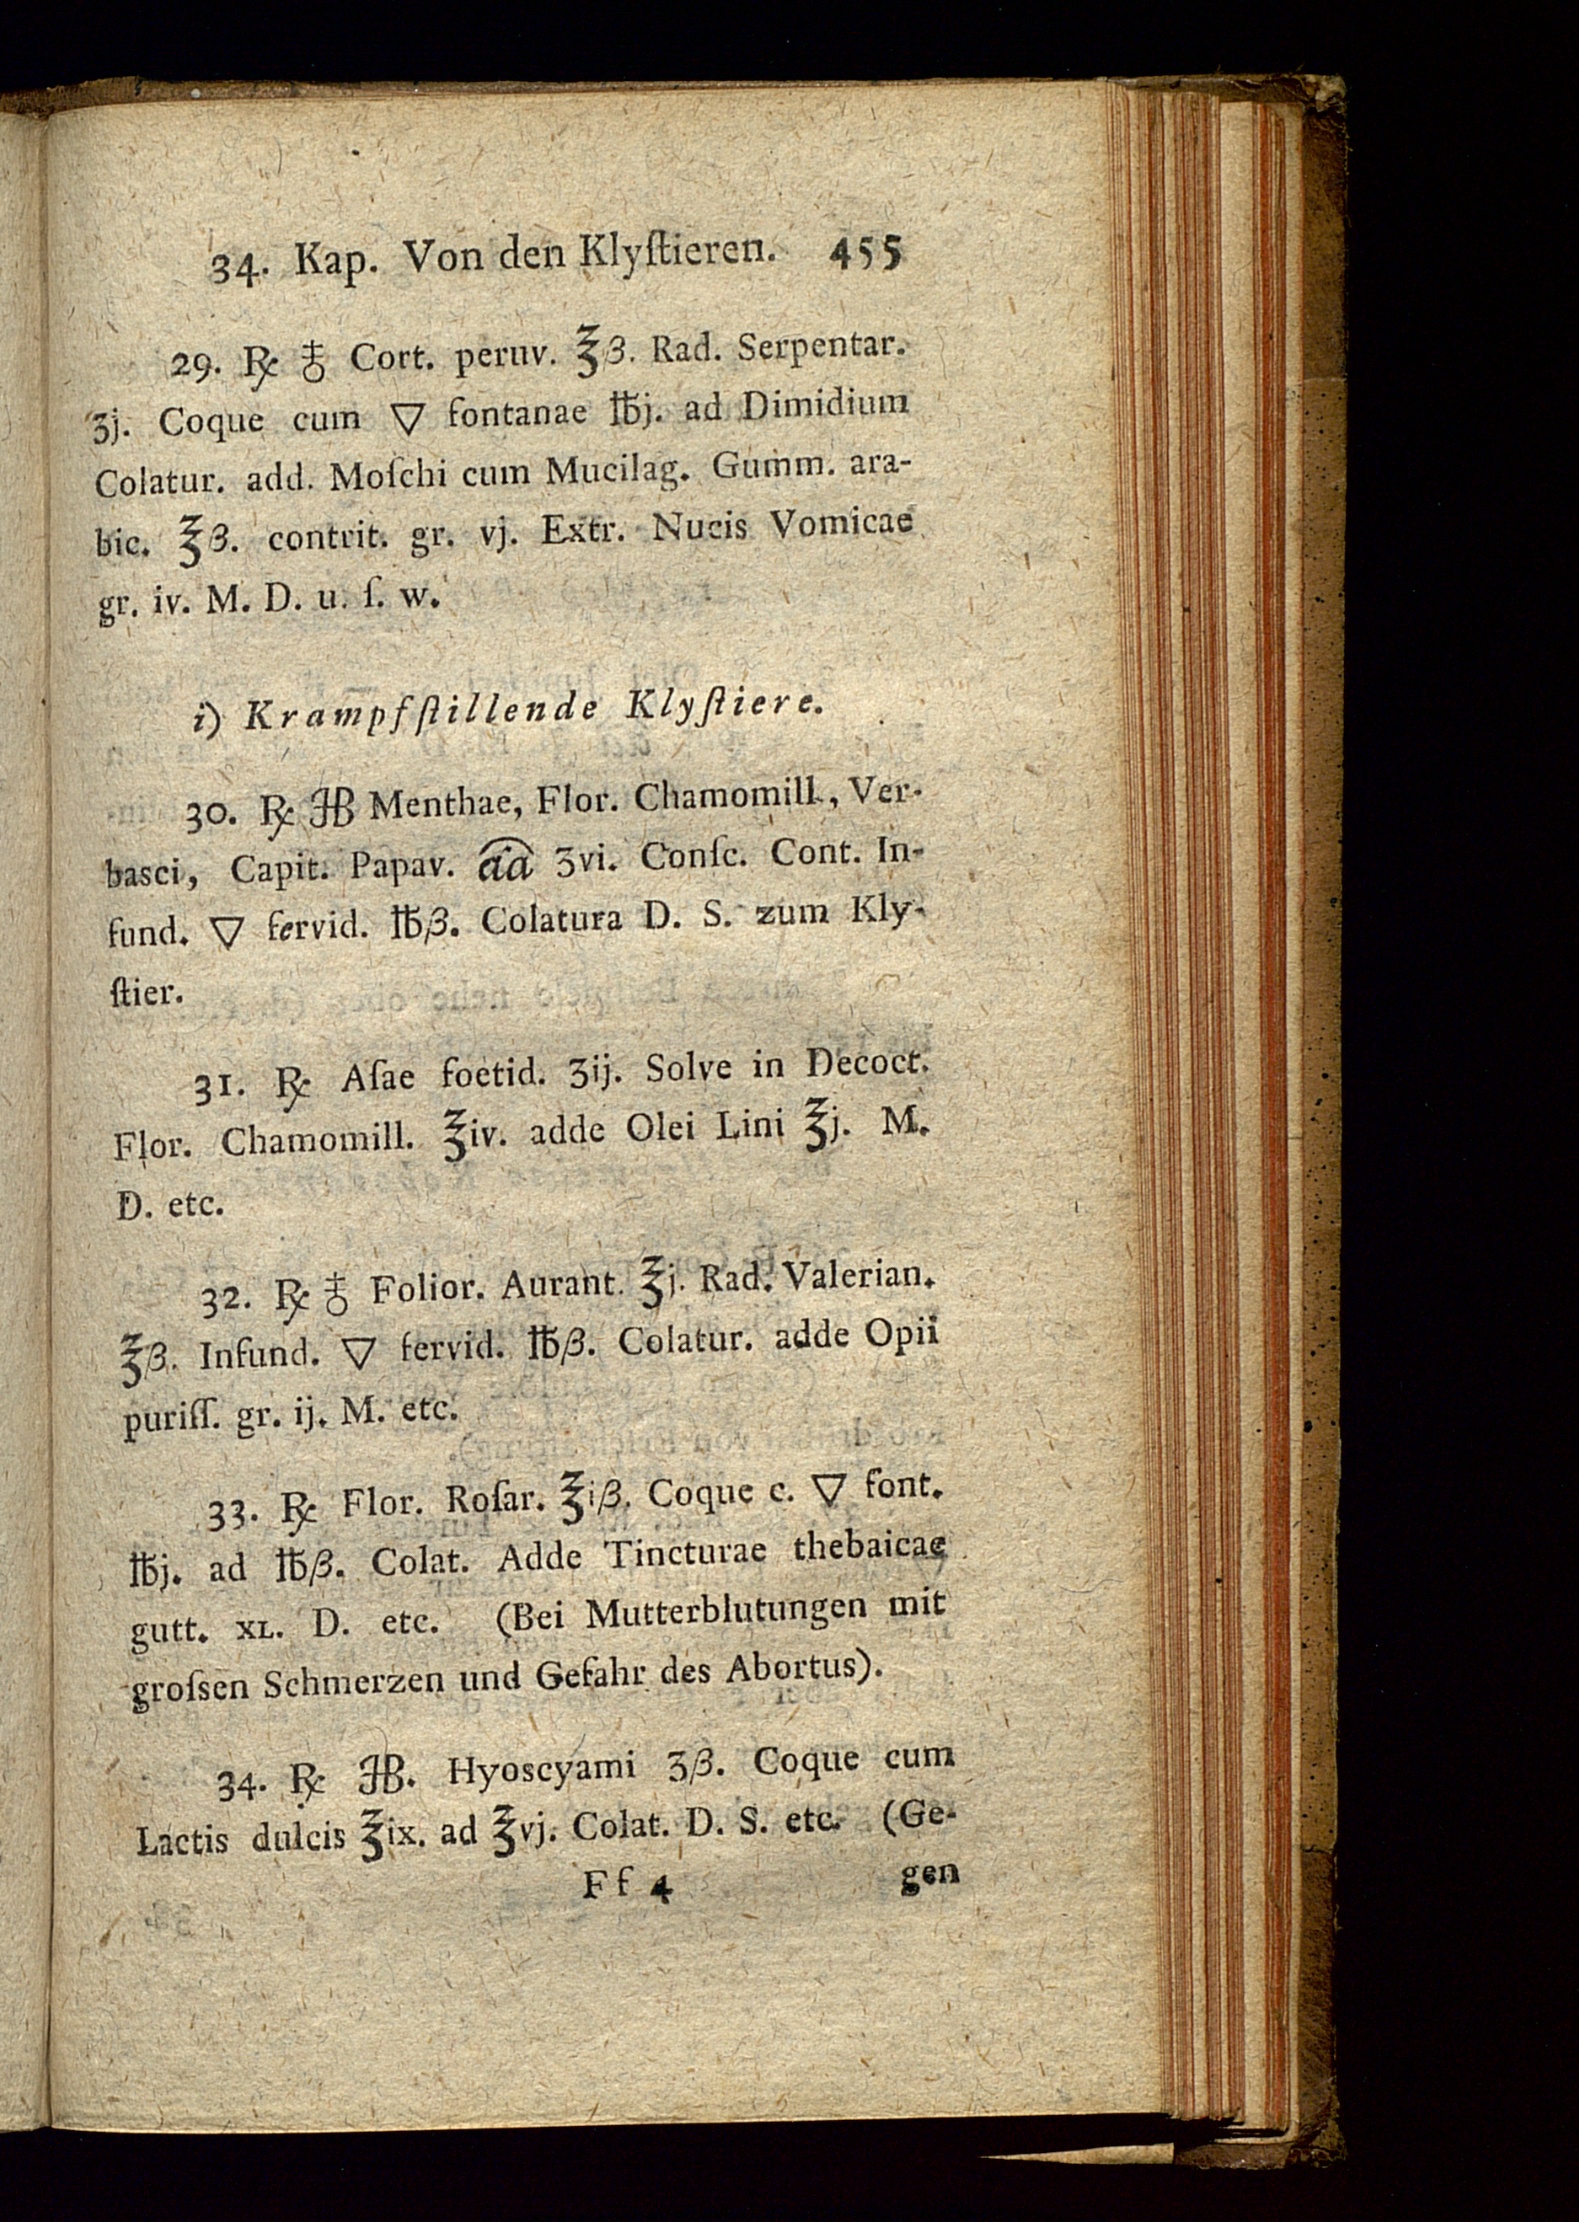 34. Kap. Von den Klyſtieren. 455
29. ℞ ♁ Cort. peruv. ℥β. Rad. Serpentar.
ʒj. Coque cum 🜄 fontanae ℔j. ad Dimidium
Colatur. add. Moſchi cum Mucilag. Gumm. ara-
bic. ℥β. contrit. gr. vj. Extr. Nucis Vomicae
gr. iv. M. D. u. ſ. w.
i) Krampfſtillende Klyſtiere.
30. ℞ HB Menthae, Flor. Chamomill., Ver-
basci, Capit. Papav. āā ʒvi. Conſc. Cont. In-
fund. 🜄 fervid. ℔β. Colatura D. S. zum Kly-
ſtier.
31. ℞ Aſae foetid. ʒij. Solve in Decoct.
Flor. Chamomill. ℥iv. adde Olei Lini ℥j. M.
D. etc.
32. ℞ ♁ Folior. Aurant. ℥j. Rad. Valerian.
℥β. Infund. 🜄 fervid. ℔β. Colatur. adde Opii
puriſſ. gr. ij. M. etc.
33. ℞ Flor. Roſar. ℥iβ. Coque c. 🜄 font.
℔j. ad ℔β. Colat. Adde Tincturae thebaicae
gutt. XL. D. etc. (Bei Mutterblutungen mit
groſsen Schmerzen und Gefahr des Abortus).
34. ℞ HB. Hyoscyami ʒβ. Coque cum
Lactis dulcis ℥ix. ad ℥vj. Colat. D. S. etc. (Ge-
Ff 4 gen